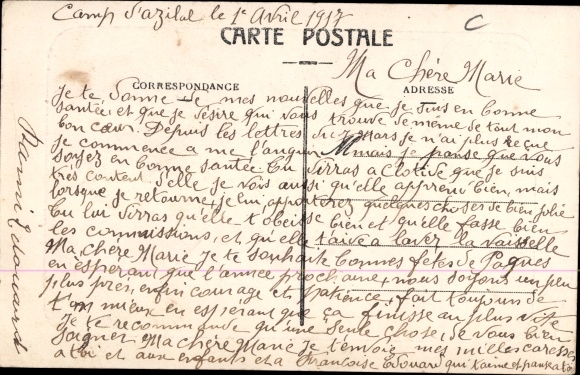 Camp d'azilal le 1e Avril 1917
C
CARTE POSTALE
Ma Chère Marie
CORRESPONDANCE
ADRESSE
Je te donne de mes nouvelles que je suis en bonne
santée et que je désire qui vous trouve de même de tout mon
bon cœur. Depuis les lettres du 7 Mars je n'ai plus reçue
je commence a me languir mais je panse que vous
soyez en bonne santée. tu diras a Clotide que je suis
très content d'elle je vois aussi qu'elle apprend bien, mais
lorsque je retourne, je lui apporterez quelques choses de bien jolie
tu lui diras qu'elle t'obeisse bien et qu'elle fasse bien
les commissions, et qu'elle t'aide a laver la vaisselle
Ma Chère Marie je te souhaite bonnes fêtes de Paques
en espèrant que l'année prochaine, nous soyons un peu
plus près, enfin courage et patience, fait toujours de
ton mieux en esperant que ça finisse au plus vite
Je te recommande qu'une seule chose, de vous bien
soigner Ma Chère Marie je t'envoie mes milles caresses
a toi et aux enfants et a Françoise Edouard qui t'aime et panse a toi
Edouard